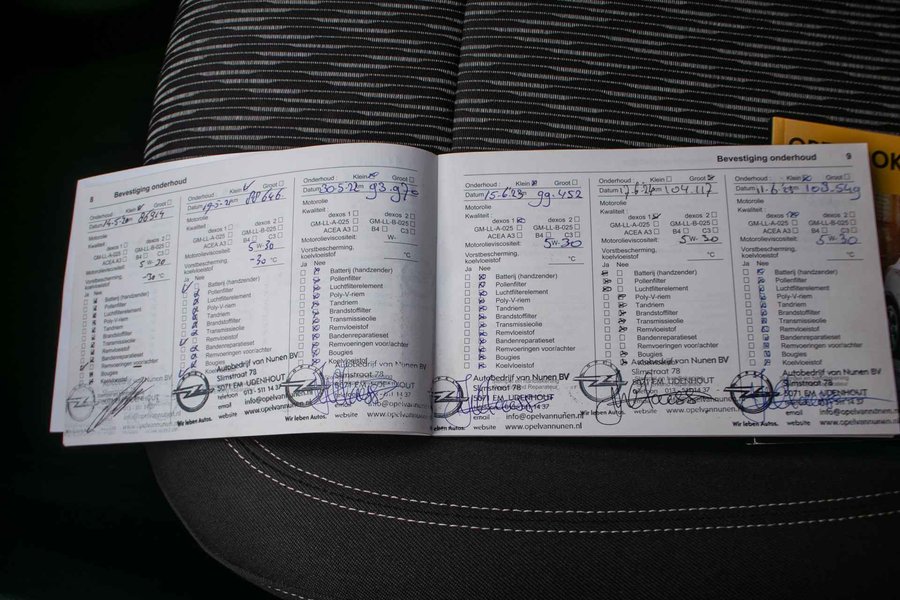 8
Bevestiging onderhoud
Onderhoud Klein Groot
Datum
Motorolie
Kwaliteit
dexos 1 dexos 2
GM-LL-A-025 GM-LL-B-025
ACEA A3 B4 C3
Motorolieviscositeit: 5 W- 30
Vorstbescherming, koelvloeistof -30 °C
Ja Nee
Batterij (handzender)
Pollenfilter
Luchtfilterelement
Poly-V-riem
Tandriem
Brandstoffilter
Transmissieolie
Remvloeistof
Bandenreparatieset
Remvoeringen voor/achter
Bougies
Koelvloeistof
Onderhoud Klein Groot
Datum
Motorolie
Kwaliteit
dexos 1 dexos 2
GM-LL-A-025 GM-LL-B-025
ACEA A3 B4 C3
Motorolieviscositeit: 5 W- 30
Vorstbescherming, koelvloeistof -30 °C
Ja Nee
Batterij (handzender)
Pollenfilter
Luchtfilterelement
Poly-V-riem
Tandriem
Brandstoffilter
Transmissieolie
Remvloeistof
Bandenreparatieset
Remvoeringen voor/achter
Bougies
Autobedrijf van Nunen BV
Slimstraat 78
5071 EM UDENHOUT
telefoon 013 - 511 14 37
email info@opelvannunen.nl
Wir leben Autos. website www.opelvannunen.nl
Onderhoud Klein Groot
Datum 30-5-22
Motorolie
Kwaliteit
dexos 1 dexos 2
GM-LL-A-025 GM-LL-B-025
ACEA A3 B4 C3
Motorolieviscositeit: W-
Vorstbescherming, koelvloeistof °C
Ja Nee
Batterij (handzender)
Pollenfilter
Luchtfilterelement
Poly-V-riem
Tandriem
Brandstoffilter
Transmissieolie
Remvloeistof
Bandenreparatieset
Remvoeringen voor/achter
Bougies
Koelvloeistof
Autobedrijf van Nunen BV
Slimstraat 78
Wir leben Autos. website www.opelvannunen.nl
Bevestiging onderhoud
9
Onderhoud Klein Groot
Datum 15-6-23 99.452
Motorolie
Kwaliteit
dexos 1 dexos 2
GM-LL-A-025 GM-LL-B-025
ACEA A3 B4 C3
Motorolieviscositeit: 5 W- 30
Vorstbescherming, koelvloeistof °C
Ja Nee
Batterij (handzender)
Pollenfilter
Luchtfilterelement
Poly-V-riem
Tandriem
Brandstoffilter
Transmissieolie
Remvloeistof
Bandenreparatieset
Remvoeringen voor/achter
Bougies
Koelvloeistof
Autobedrijf van Nunen BV
Slimstraat 78
5071 EM UDENHOUT
email info@opelvannunen.nl
Wir leben Autos. website www.opelvannunen.nl
Onderhoud Klein Groot
Datum 104.117
Motorolie
Kwaliteit
dexos 1 dexos 2
GM-LL-A-025 GM-LL-B-025
ACEA A3 B4 C3
Motorolieviscositeit: 5 W- 30
Vorstbescherming, koelvloeistof °C
Ja Nee
Batterij (handzender)
Pollenfilter
Luchtfilterelement
Poly-V-riem
Tandriem
Brandstoffilter
Transmissieolie
Remvloeistof
Bandenreparatieset
Remvoeringen voor/achter
Bougies
Autobedrijf van Nunen BV
Slimstraat 78
5071 EM UDENHOUT
Wir leben Autos. website www.opelvannunen.nl
Onderhoud Klein Groot
Datum 11-6-25
Motorolie
Kwaliteit
dexos 1 dexos 2
GM-LL-A-025 GM-LL-B-025
ACEA A3 B4 C3
Motorolieviscositeit: 5 W- 30
Vorstbescherming, koelvloeistof °C
Ja Nee
Batterij (handzender)
Pollenfilter
Luchtfilterelement
Poly-V-riem
Tandriem
Brandstoffilter
Transmissieolie
Remvloeistof
Bandenreparatieset
Remvoeringen voor/achter
Bougies
Koelvloeistof
Autobedrijf van Nunen BV
Slimstraat 78
5071 EM UDENHOUT
email info@opelvannunen.nl
Wir leben Autos. website www.opelvannunen.nl